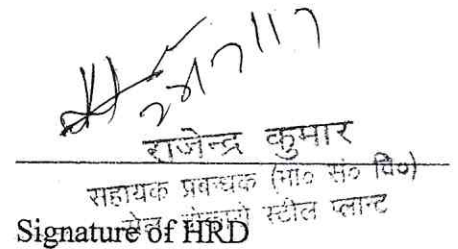 राजेन्द्र कुमार
सहायक प्रबन्धक (मा० सं० वि०)
स्टील प्लान्ट
Signature of HRD